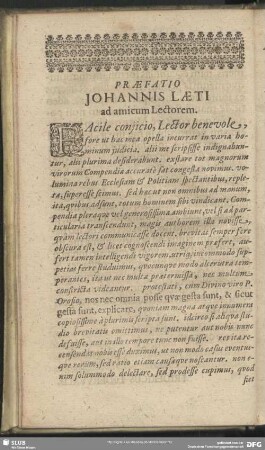 PRÆFATIO
JOHANNIS LÆTI
ad amicum Lectorem.
FAcile conjicio, Lector benevole,
fore ut hac mea opella incurrat in varia ho-
minum judicia, alii me scripsisse indignabun-
tur, alii plurima desiderabunt. exstare tot magnorum
virorum Compendia accuratè sat congesta novimus. vo-
lumina rebus Ecclesiam & Patriam spectantibus, reple-
ta, superesse scimus. sed hæc ut non omnibus ad manum,
ita, quibus adsunt, eorum hominum sibi vindicant. Com-
pendia pleraque vel generosissima ambiunt, vel si ad par-
ticularia transcendunt, magis authorem illa novisse,
quàm lectori communicasse docent. brevitas semper fere
obscura est, & licet cognoscendi imaginem præfert, au-
fert tamen intelligendi vigorem. utriq; incommodo sup-
petias ferre studuimus, quocunque modo alteri utra tem-
perantes, ita ut nec multa prætermissa, nec moltum
constricta videantur. protestati, cum Divino viro P.
Orosio, nos nec omnia posse quæ gesta sunt, & sicut
gesta sunt, explicare, quoniam magna atque innumera
copiosissimè à plurimis scripta sunt. idcirco si aliqua stu-
dio brevitatis omittimus, ne putentur aut nobis nunc
defuisse, aut in illo tempore tunc non fuisse.
ut non modo casus eventus-
que rerum, sed ratio etiam causæque noscantur. non e-
nim solummodo delectare, sed prodesse cupimus, quod
fiet